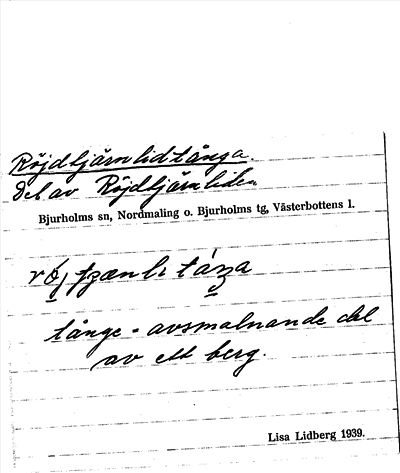 Röjdtjärnlidtånga.
Del av Röjdtjärnliden
Bjurholms sn, Nordmaling o. Bjurholms tg, Västerbottens l.
tånge = avsmalnande del
av ett berg.
Lisa Lidberg 1939.